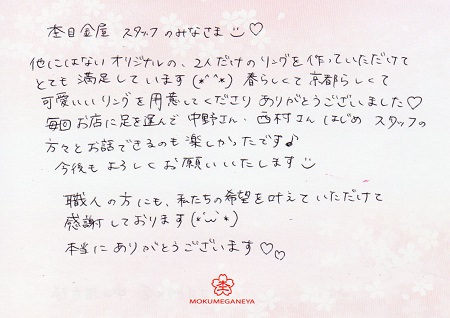 杢目金屋 スタッフのみなさま☺♡
他にはない オリジナルの、2人だけのリングを作っていただけて
とても 満足しています(*^^*) 春らしくて 京都らしくて
可愛いいリングを用意してくださり ありがとうございました♡
毎回お店に足を運んで 中野さん、西村さん はじめ スタッフの
方々とお話できるのも楽しかったです♪
今後も よろしく お願いいたします☺
職人の方にも、私たちの希望を叶えていただけて
感謝しております(*´ω`*)
本当に ありがとうございます♡♡
MOKUMEGANEYA